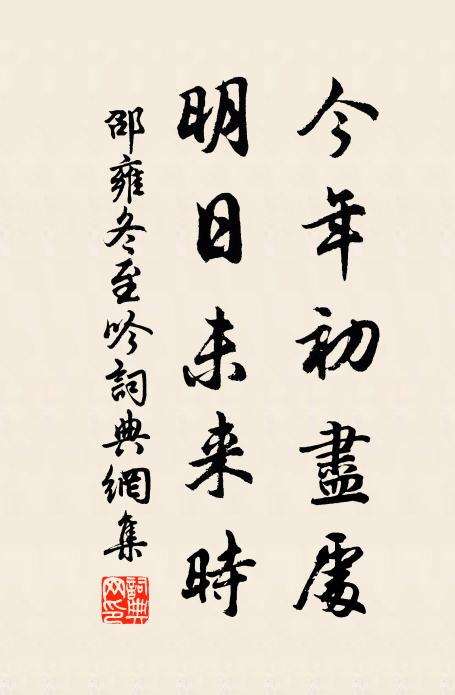 今年初盡處
明日未来時
邵雍冬至吟詞典網集
詞典网印